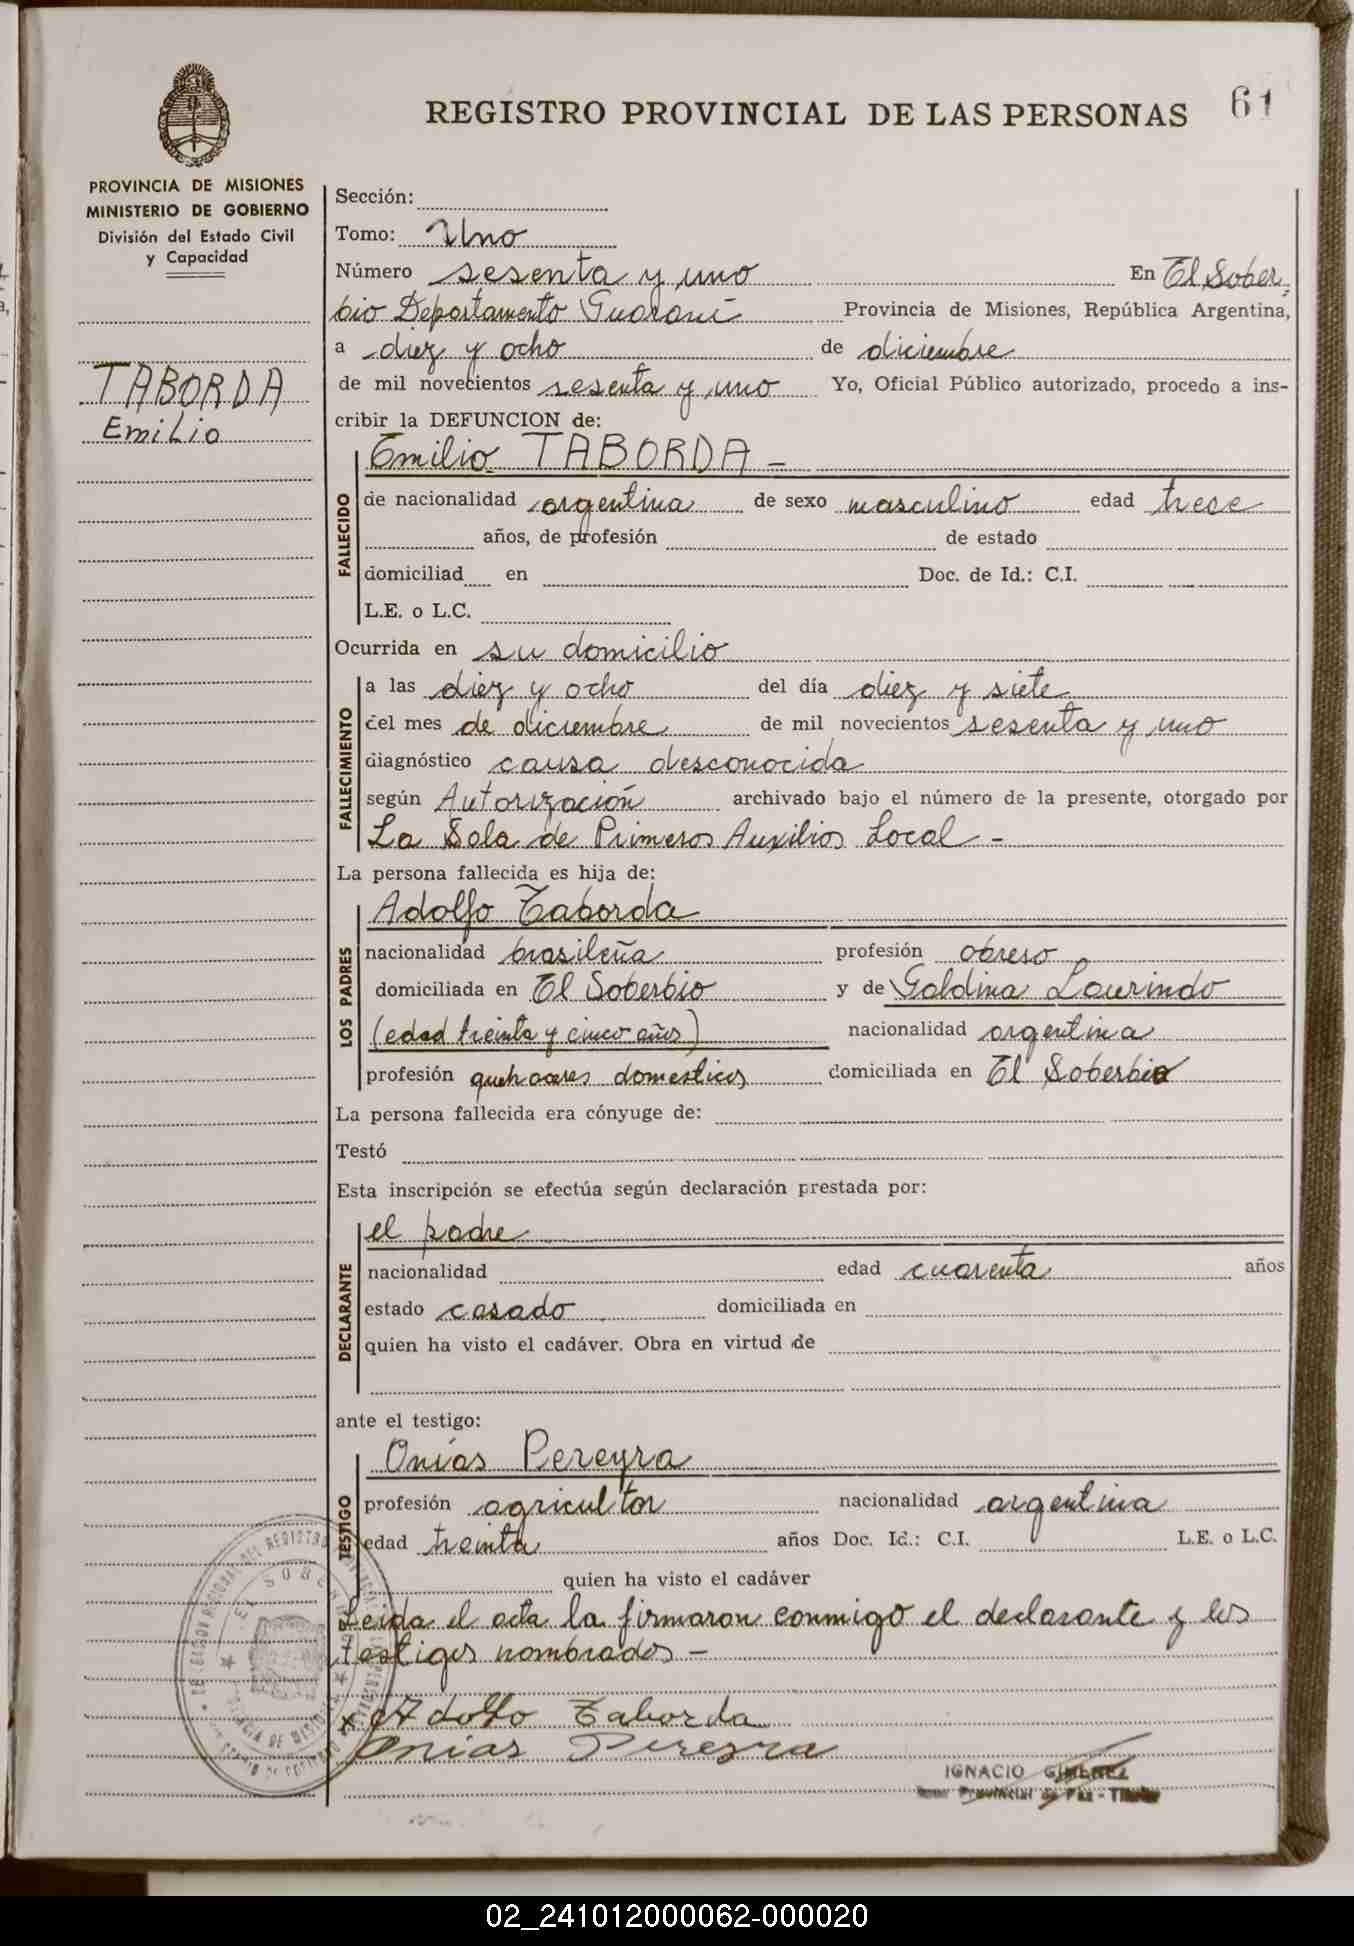 61
REGISTRO PROVINCIAL DE LAS PERSONAS
PROVINCIA DE MISIONES
MINISTERIO DE GOBIERNO
División del Estado Civil
y Capacidad
TABORDA
Emilio
Sección:
Tomo: Uno
Número sesenta y uno En El Sober
bio Departamento Guaraní Provincia de Misiones, República Argentina,
a diez y ocho de diciembre
de mil novecientos sesenta y uno Yo, Oficial Público autorizado, procedo a ins-
cribir la DEFUNCION de:
Emilio TABORDA -
FALLECIDO
de nacionalidad argentina de sexo masculino edad trece
años, de profesión de estado
domiciliad en Doc. de Id.: C.I.
L.E. o L.C.
Ocurrida en su domicilio
FALLECIMIENTO
a las diez y ocho del día diez y siete
del mes de diciembre de mil novecientos sesenta y uno
diagnóstico causa desconocida
según Autorización archivado bajo el número de la presente, otorgado por
La Sala de Primeros Auxilios Local -
La persona fallecida es hija de:
LOS PADRES
Adolfo Taborda
nacionalidad brasileña profesión obrero
domiciliada en El Soberbio y de Galdina Laurindo
(edad treinta y cinco años) nacionalidad argentina
profesión quehaceres domesticos domiciliada en El Soberbio
La persona fallecida era cónyuge de:
Testó
Esta inscripción se efectúa según declaración prestada por:
DECLARANTE
el padre
nacionalidad edad cuarenta años
estado casado domiciliada en
quien ha visto el cadáver. Obra en virtud de
ante el testigo:
TESTIGO
Onías Pereyra
profesión agricultor nacionalidad argentina
edad treinta años Doc. Id.: C.I. L.E. o L.C.
quien ha visto el cadáver
Leida el acta la firmaron conmigo el declarante y los
testigos nombrados -
x Adolfo Taborda
Onias Pereyra
IGNACIO GIMENEZ
Provincial de Paz - Titular
02_241012000062-000020